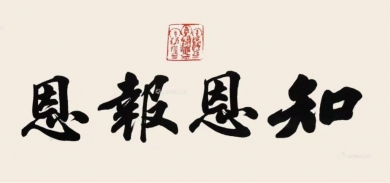 知恩報恩